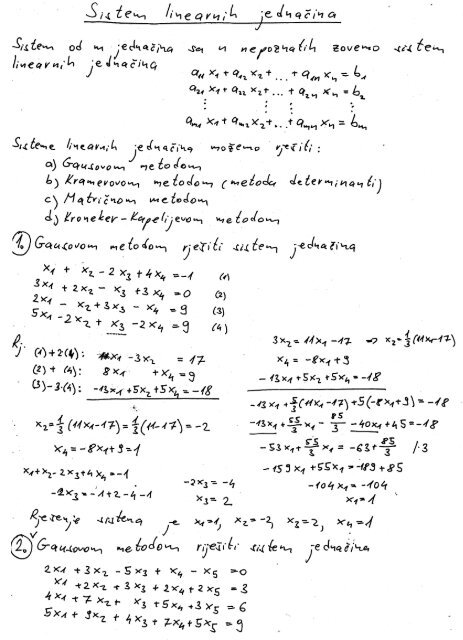 Sistem linearnih jednačina
Sistem od m jednačina sa n nepoznatih zovemo sistem
linearnih jednačina
a11 x1 + a12 x2 + ... + a1n xn = b1
a21 x1 + a22 x2 + ... + a2n xn = b2
⋮ ⋮ ⋮ ⋮
am1 x1 + am2 x2 + ... + amn xn = bm
Sisteme linearnih jednačina možemo rješiti:
a) Gausovom metodom
b) Kramerovom metodom (metoda determinanti)
c) Matričnom metodom
d) Kroneker-Kapelijevom metodom
1. Gausovom metodom rješiti sistem jednačina
x1 + x2 - 2x3 + 4x4 = -1 (1)
3x1 + 2x2 - x3 + 3x4 = 0 (2)
2x1 - x2 + 3x3 - x4 = 9 (3)
5x1 - 2x2 + x3 - 2x4 = 9 (4)
Rj.
(1)+2(4): 11x1 - 3x2 = 17
(2) + (4): 8x1 + x4 = 9
(3)-3(4): -13x1 + 5x2 + 5x4 = -18
x2 = 1/3 (11x1 - 17) = 1/3 (11 - 17) = -2
x4 = -8x1 + 9 = 1
x1 + x2 - 2x3 + 4x4 = -1
-2x3 = -1 + 2 - 4 - 1
-2x3 = -4
x3 = 2
3x2 = 11x1 - 17 ⇒ x2 = 1/3 (11x1 - 17)
x4 = -8x1 + 9
-13x1 + 5x2 + 5x4 = -18
-13x1 + 5/3 (11x1 - 17) + 5(-8x1 + 9) = -18
-13x1 + 55/3 x1 - 85/3 - 40x1 + 45 = -18
-53x1 + 55/3 x1 = -63 + 85/3 /·3
-159x1 + 55x1 = -189 + 85
-104x1 = -104
x1 = 1
Rješenje sistema je x1 = 1, x2 = -2, x3 = 2, x4 = 1
2. Gausovom metodom riješiti sistem jednačina
2x1 + 3x2 - 5x3 + x4 - x5 = 0
x1 + 2x2 + 3x3 + 2x4 + 2x5 = 3
4x1 + 7x2 + x3 + 5x4 + 3x5 = 6
5x1 + 9x2 + 4x3 + 7x4 + 5x5 = 9